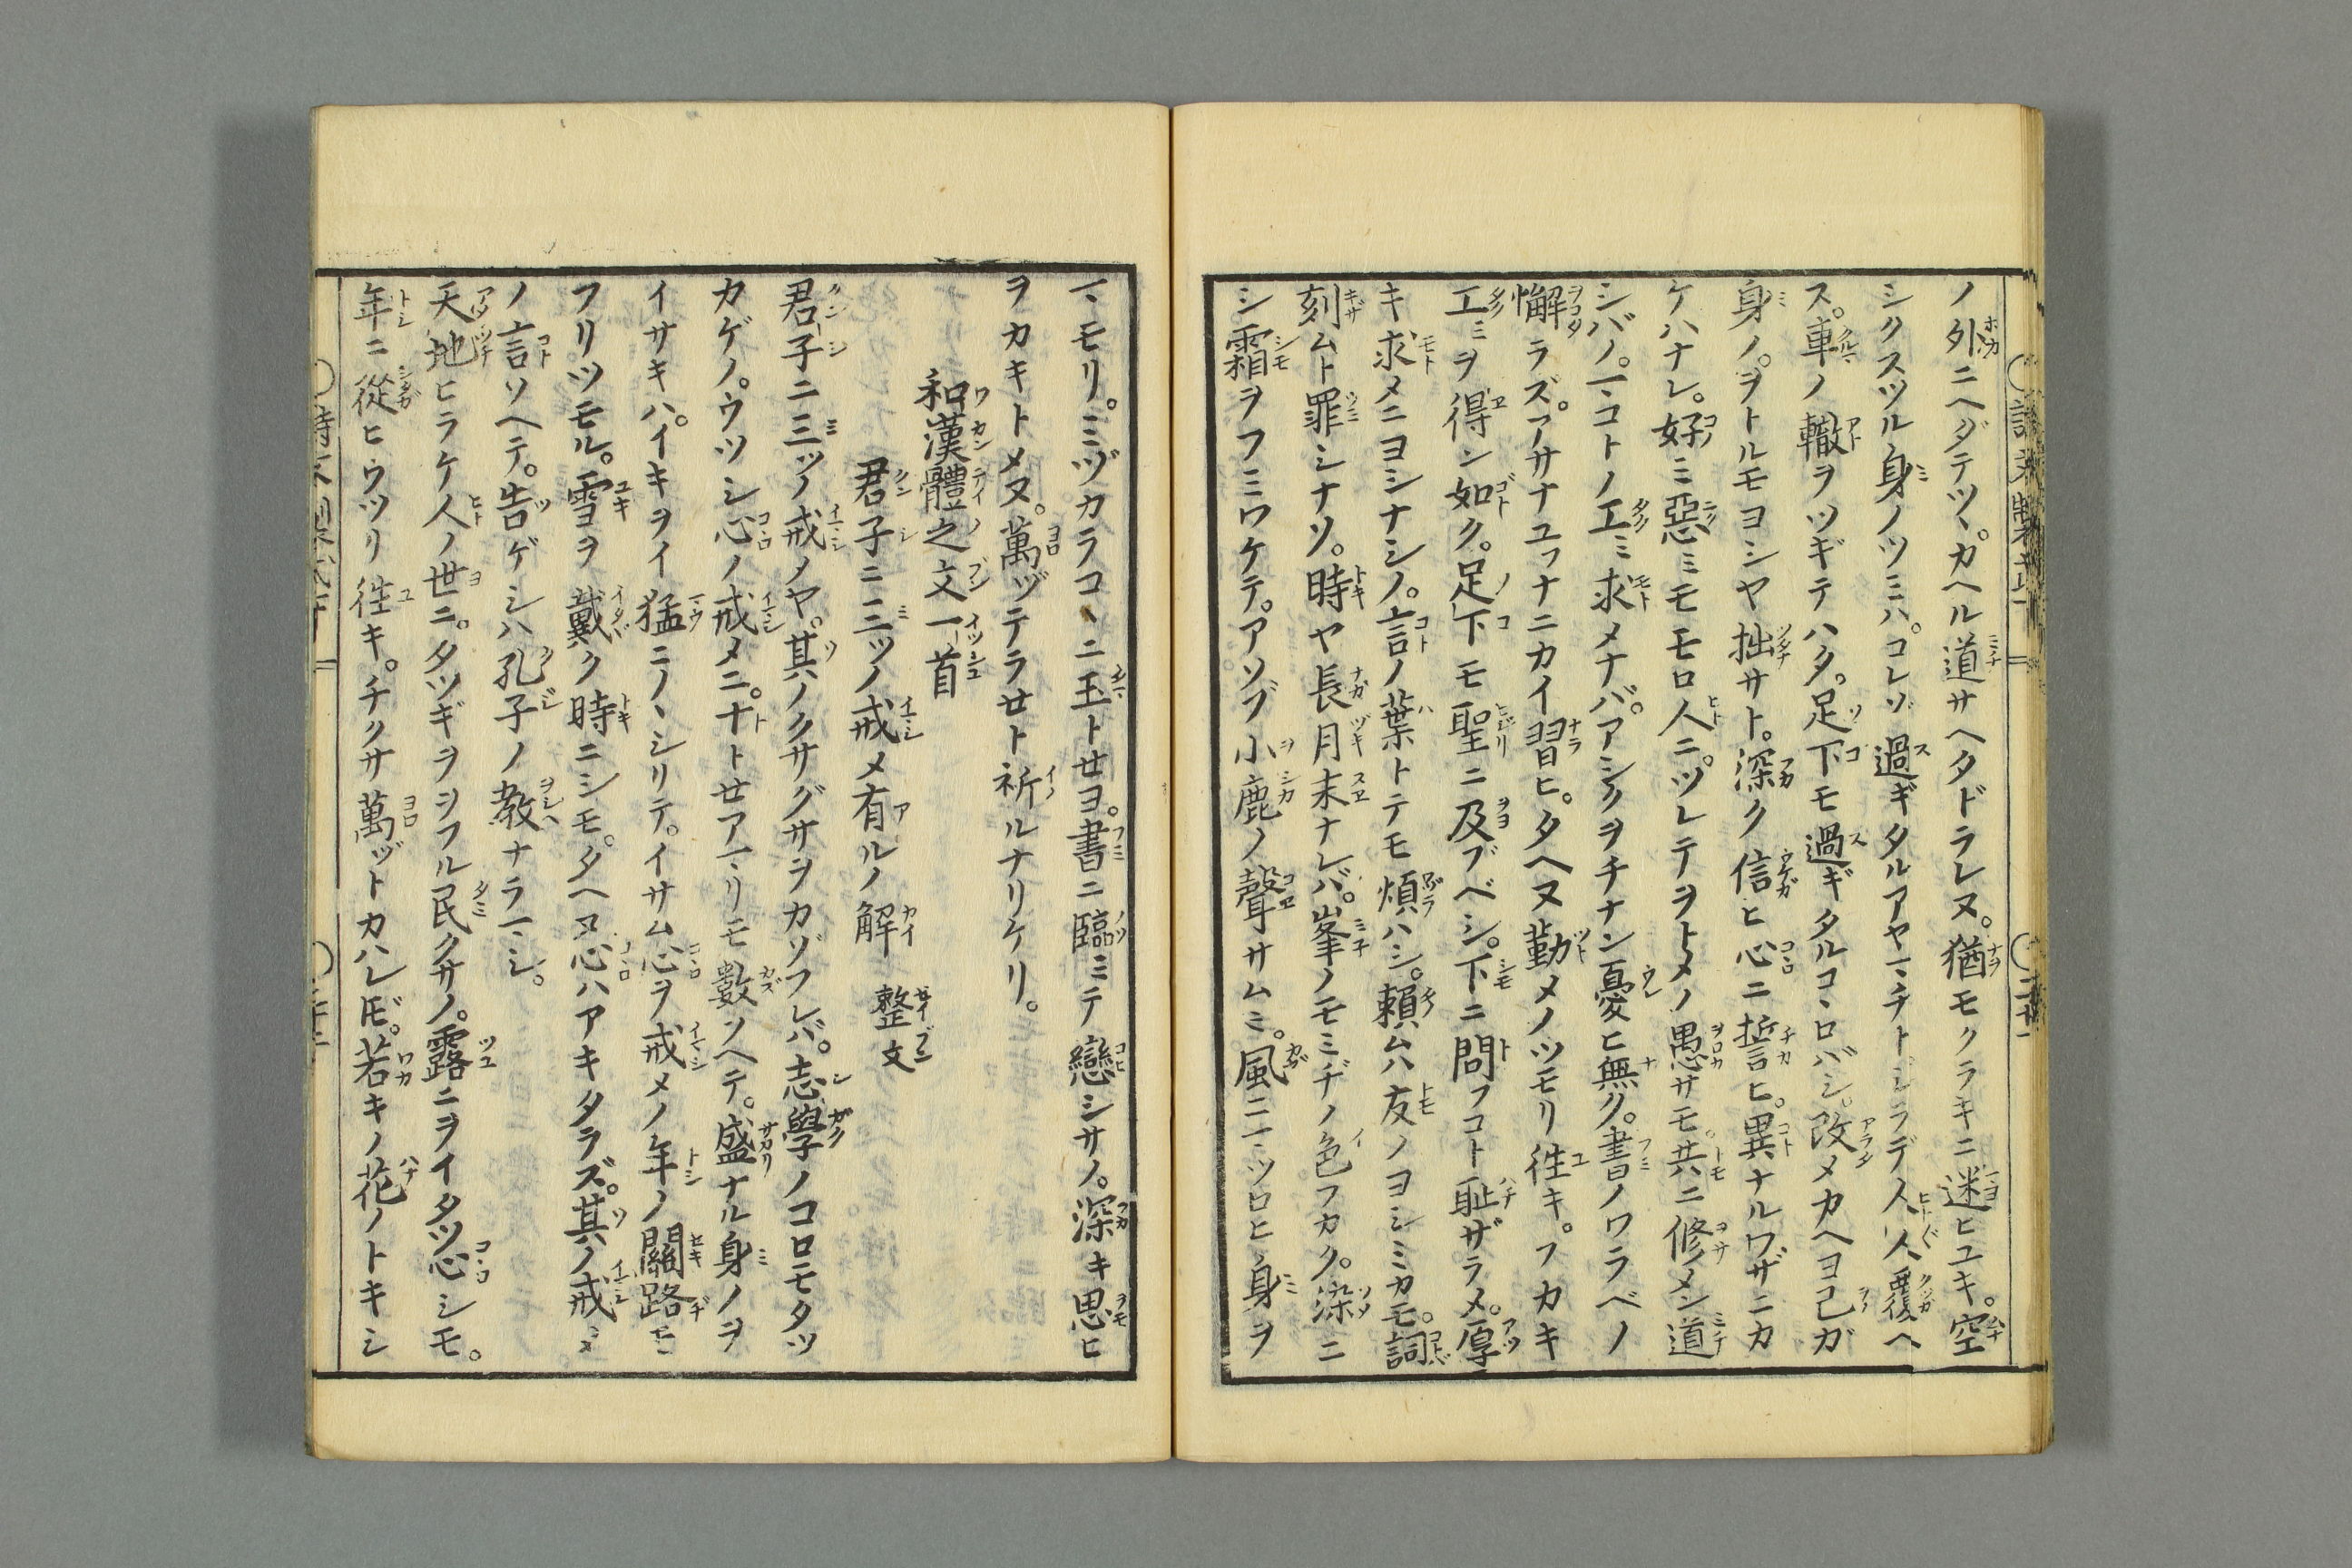 ノ外ニヘダテツヽ。カヘル道サヘタドラレヌ。猶モクラキニ迷ヒユキ。空
シクスツル身ノツミハ。コレゾ過ギタルアヤマチトシラデ人々覆ヘ
ス。車ノ轍ヲツギテハタ。足下モ過ギタルコヽロバシ。改メカヘヨ己ガ
身ノ。ヲトルモヨシヤ拙サト。深ク信ヒ心ニ誓ヒ。異ナルワザニカ
ケハナレ。好ミ惡ミモモロ人ニ。ツレテヲトメノ愚サモ共ニ修メン道
シバノ。マコトノ工ミ求メナバ。アシクヲチナン憂ヒ無ク。書ノワラベノ
懈ラズ。アサナユフナニカイ習ヒ。タヘヌ勤メノツモリ徃キ。フカキ
工ミヲ得ン如ク。足下モ聖ニ及ブベシ。下ニ問フコト耻ザラメ。厚
キ求メニヨシナシノ。言ノ葉トテモ煩ハシ。賴ムハ友ノヨシミカモ。詞
刻ムト罪シナソ。時ヤ長月末ナレバ。峯ノモミヂノ色フカク。深ニ
シ霜ヲフミワケテ。アソブ小鹿ノ聲サムミ。風ニマツロヒ身ヲ
マモリ。ミヅカラコヽニ玉トセヨ。書ニ臨ミテ戀シサノ。深キ思ヒ
ヲカキトメヌ。萬ヅテラセト祈ルナリケリ。
和漢體之文一首
君子ニ三ツノ戒メ有ルノ解 整文
君子ニ三ツノ戒メヤ。其ノクサグサヲカゾフレバ。志學ノコロモタツ
カゲノ。ウツシ心ノ戒メニ。十トセアマリモ數ソヘテ。盛ナル身ノヲ
イサキハ。イキヲイ猛ニノヽシリテ。イサム心ヲ戒メノ年ノ關路モ
フリツモル。雪ヲ戴ク時ニシモ。タヘヌ心ハアキタラズ。其ノ戒ミ
ノ言ソヘテ。告ゲシハ孔子ノ敎ナラマシ。
天地ヒラケ人ノ世ニ。タツギヲヲフル民クサノ。露ニヲイタツ心シモ。
年ニ從ヒウツリ徃キ。チクサ萬ヅトカハレドモ。若キノ花ノトキシ